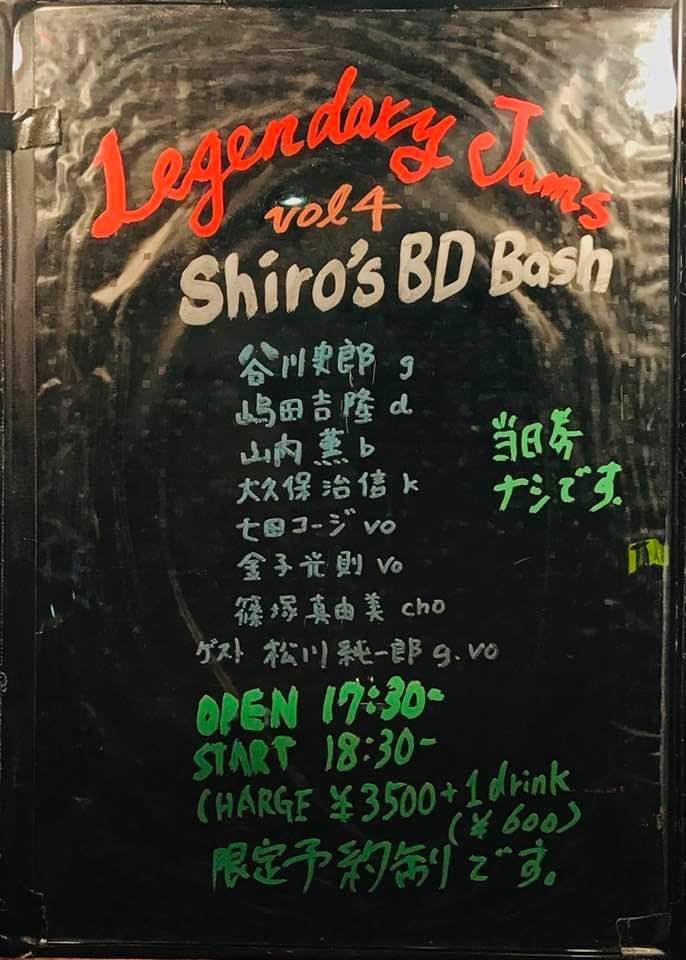 Legendary Jams
vol4
Shiro's BD Bash
谷川史郎 g
嶋田吉隆 d
山内薫 b
大久保治信 k
七田コージ vo
金子光則 vo
篠塚真由美 cho
ゲスト 松川純一郎 g.vo
当日券
ナシです。
OPEN 17:30-
START 18:30-
CHARGE ¥3500+1drink
(¥600)
限定予約制りです。